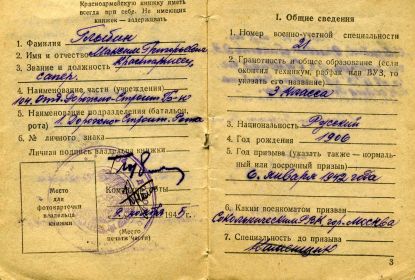 Красноармейскую книжку иметь
всегда при себе. Не имеющих
книжек — задерживать
1. Фамилия
2. Имя и отчество Максим Григорьевич
3. Звание и должность Красноармеец,
сапер.
4. Наименование части (учреждения)
104. Отд. Дорожно-Строит. Б-н
5. Наименование подразделения (батальон,
рота) 1 Дорожно-Строит. Рота
6. № личного знака
Личная подпись владельца книжки
Место
для
фотокарточки
владельца
книжки
Командир
1945 г.
(Место
печати части)
I. Общие сведения
1. Номер военно-учетной специальности
21
2. Грамотность и общее образование (если
окончил техникум, рабфак или ВУЗ, то
указать его название)
3 класса
3. Национальность Русский
4. Год рождения 1906
5. Год призыва (указать также — нормаль-
ный или досрочный призыв)
6. Января 1942 года
6. Каким военкоматом призван
Сокольническим РВК гор. Москва
7. Специальность до призыва
3